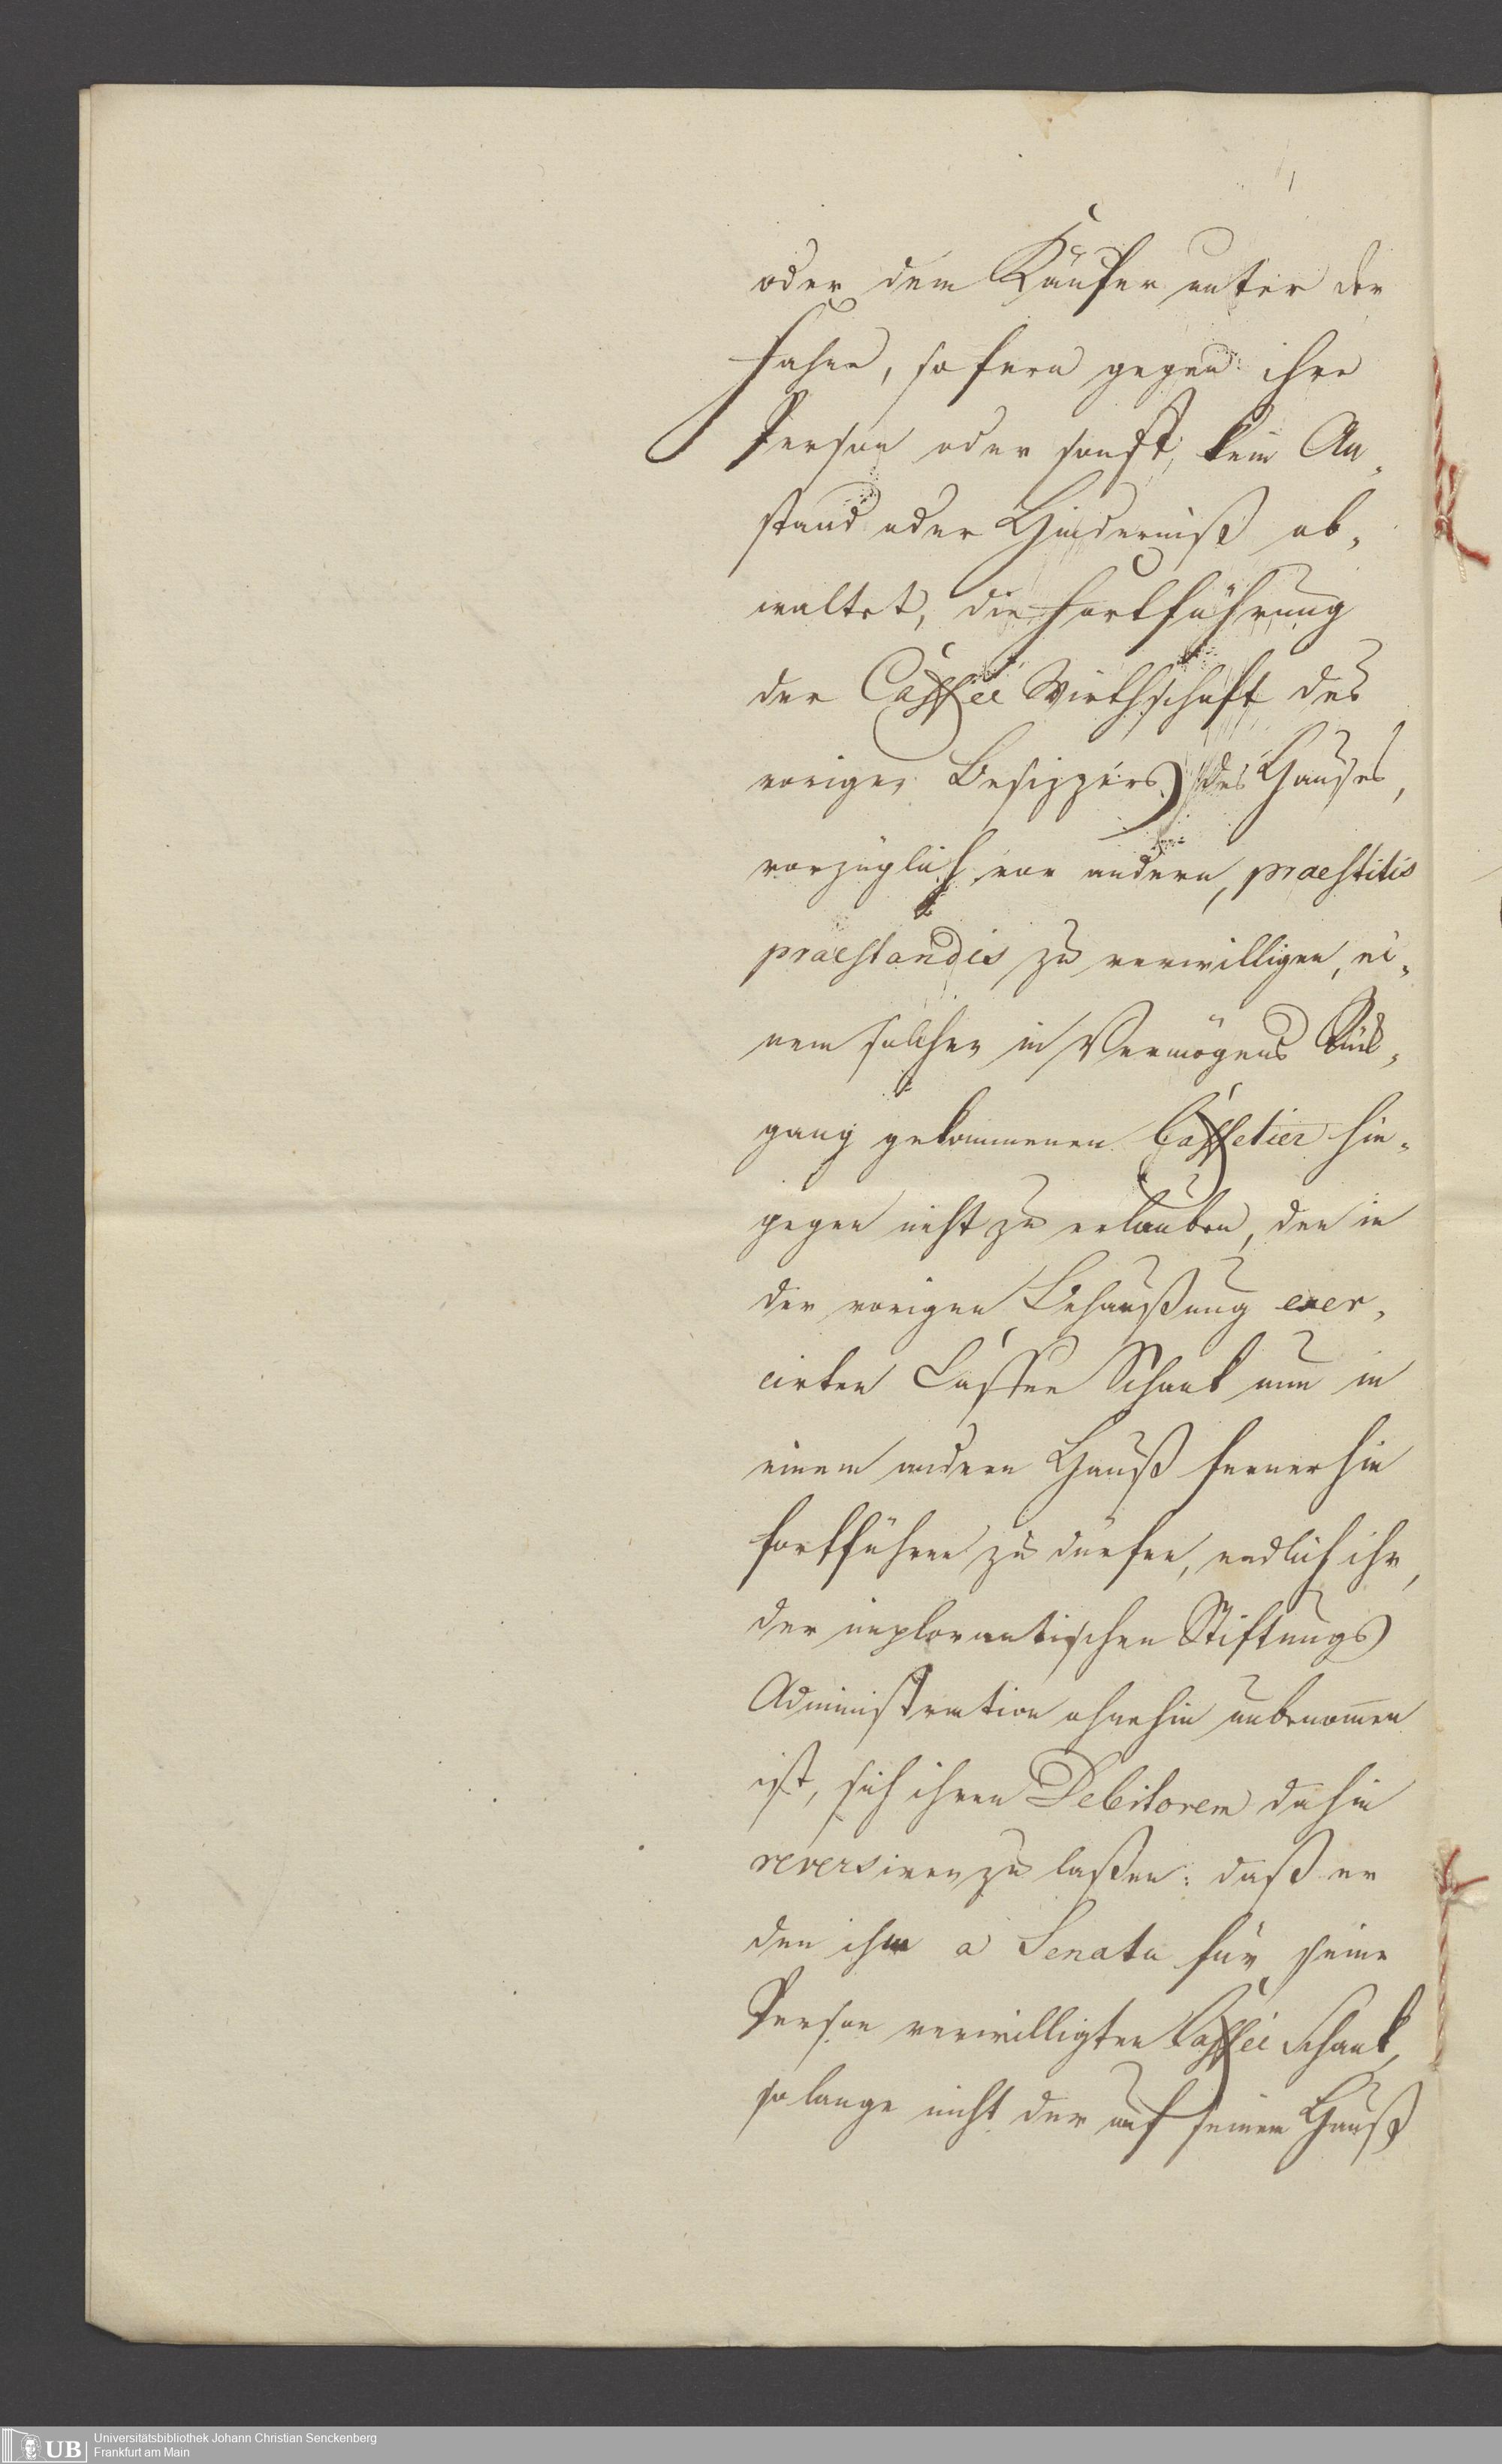 oder dem Käufer unter der
Fahne, so fern gegen ihre
Person oder sonst, kein An„
stand oder Hinderniß ob„
waltet, die Fortführung
der Caffée Wirthschaft des
vorigen Besizzers des Hauses,
vorzüglich vor andern, praestitis
praestandis zu verwilligen, ei„
nem solchen in Vermögens Rük„
gang gekommenen Caffetier hin„
gegen nicht zu erlauben, den in
der vorigen Behaußung exer„
cirten Caffee Schank nun in
einem andern Hauß fernerhin
fortführen zu dürfen, endlich ihr,
der implorantischen Stiftungs
Administration ohnehin unbenom̅en
ist, sich ihren Debitorem dahin
reversiren zu laßen: daß er
den ihm a Senatu für seine
Person verwilligten Caffée Schank,
so lange nicht der auf seinem Hauß
UB
Universitätsbibliothek Johann Christian Senckenberg
Frankfurt am Main